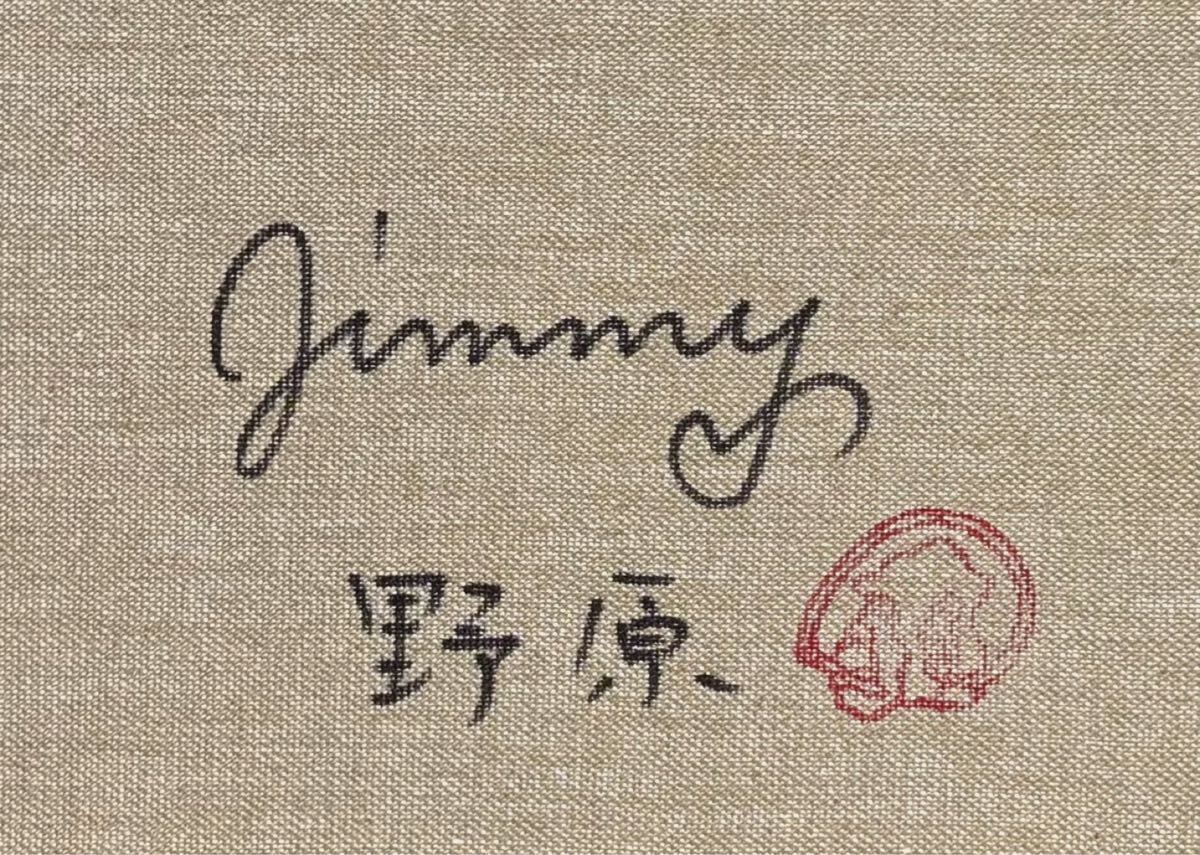 Jimmy
野原